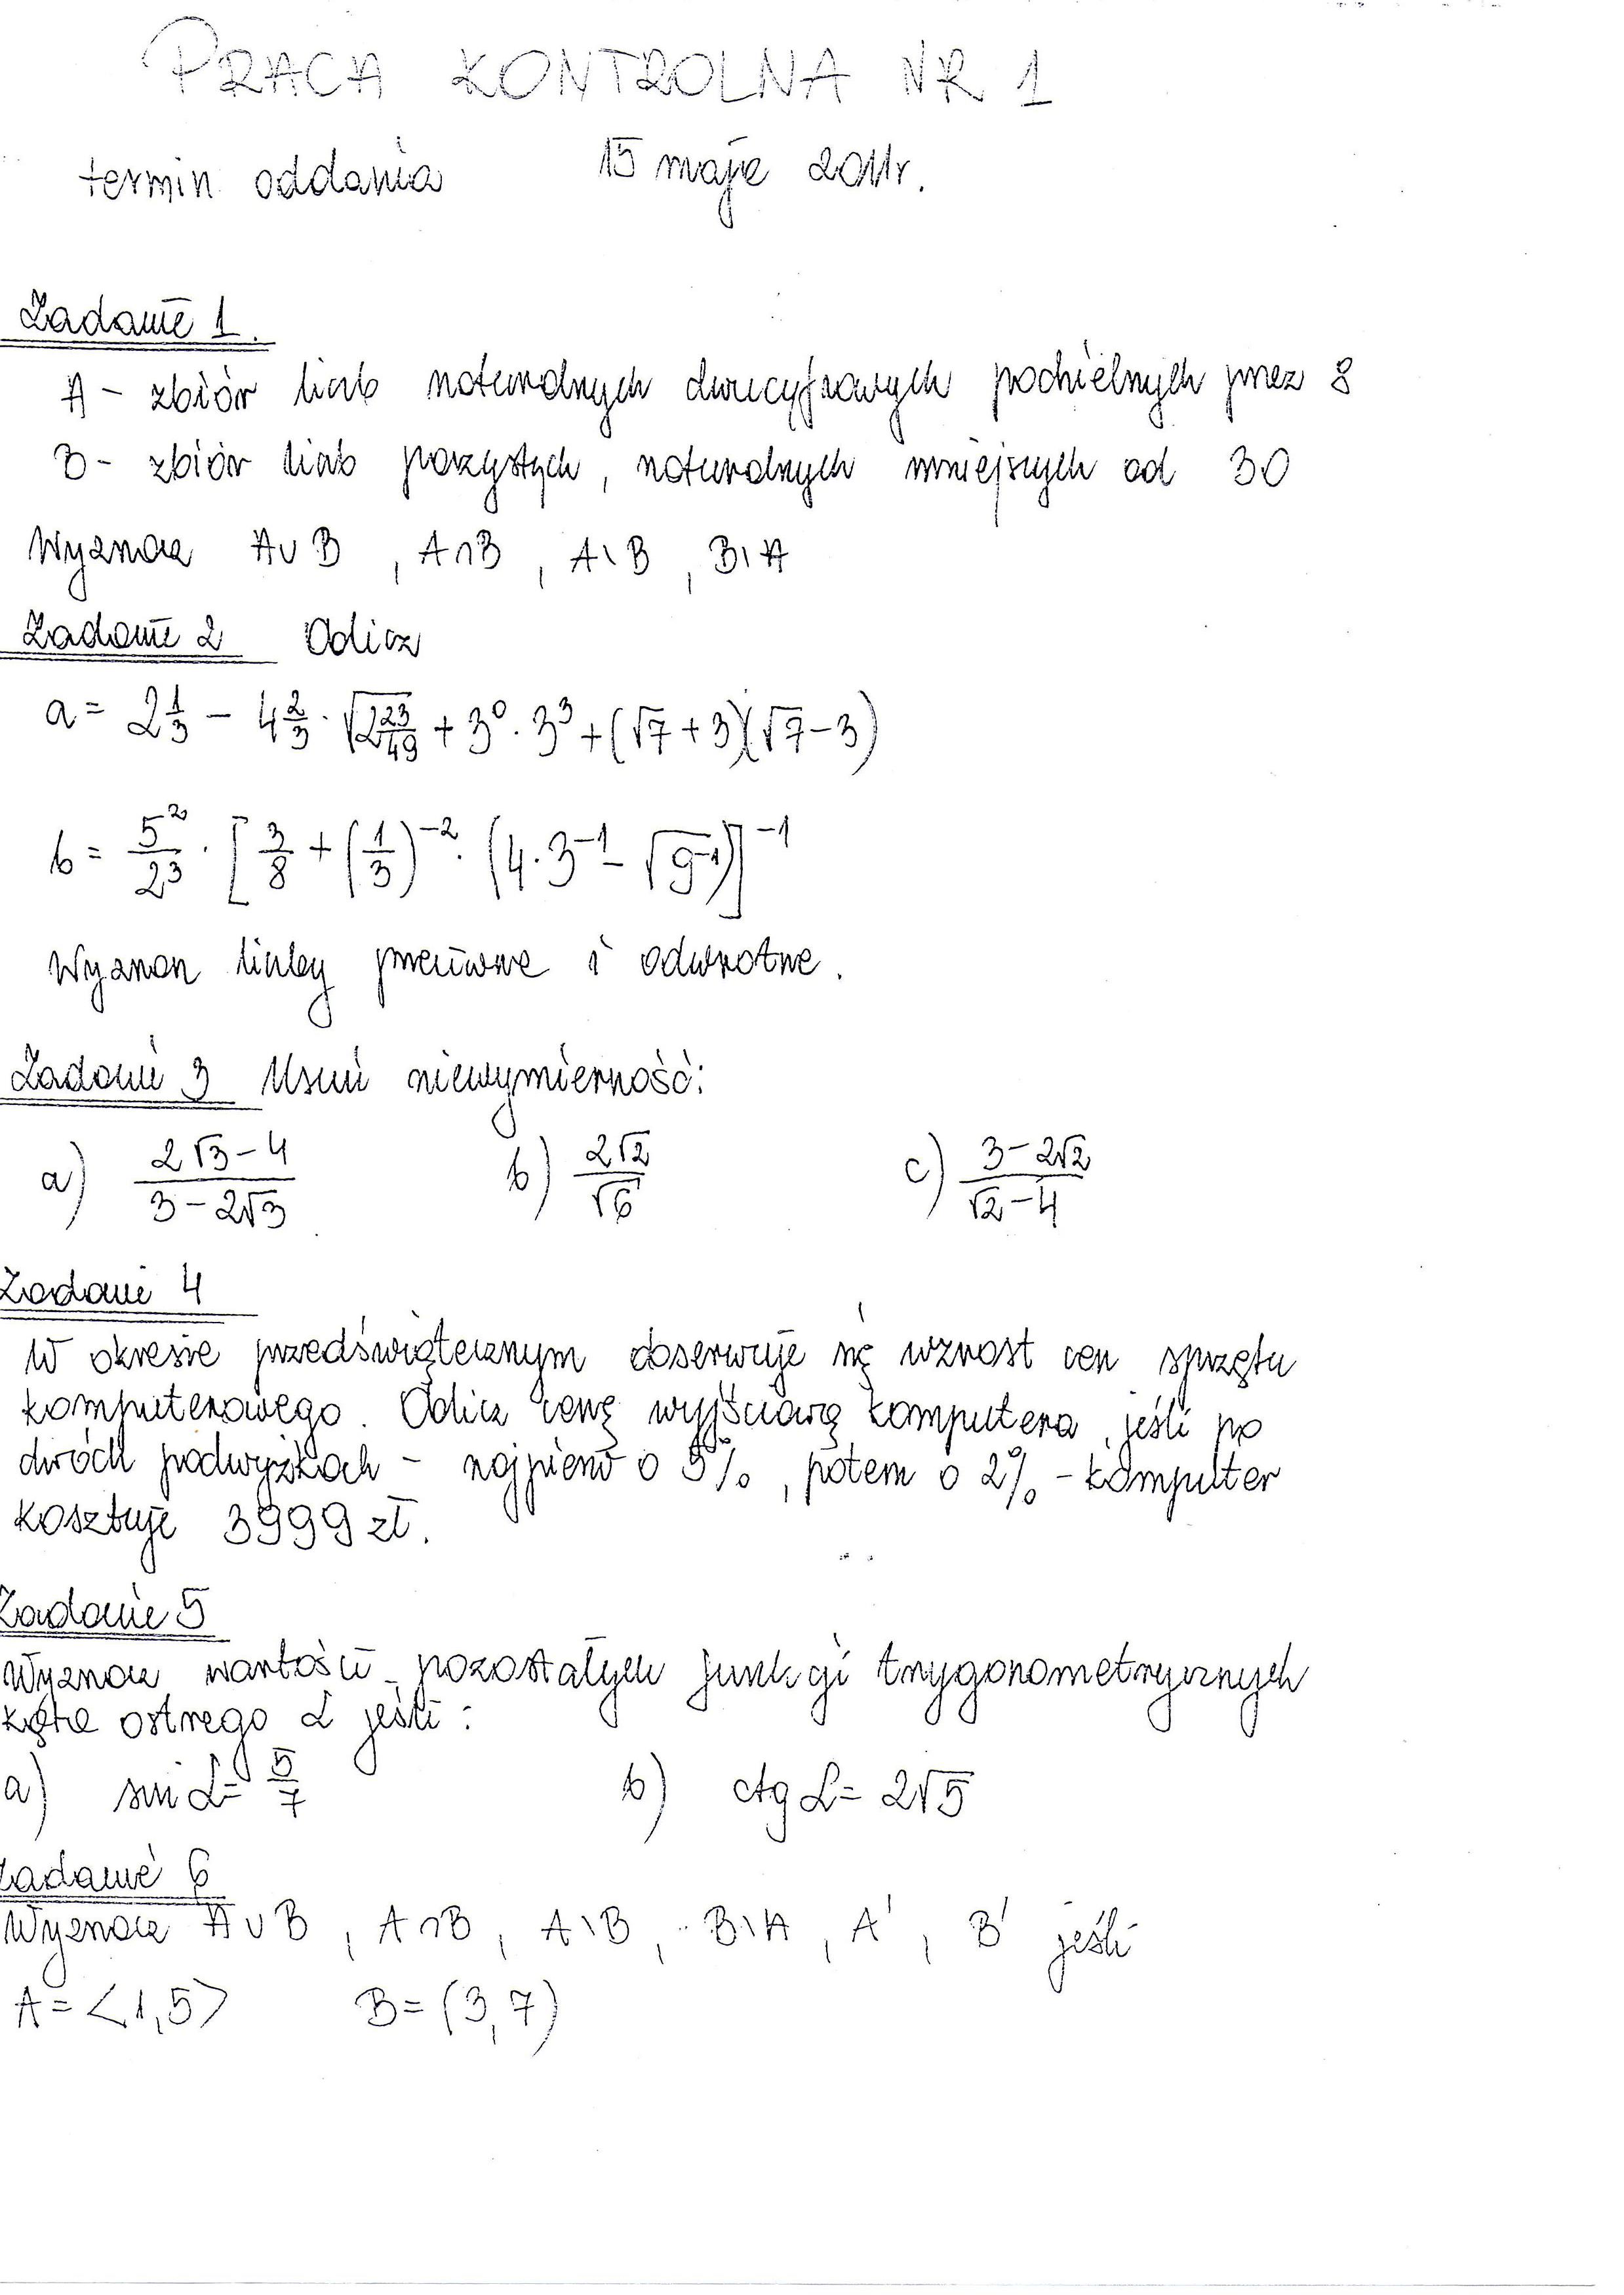 PRACA KONTROLNA NR 1
termin oddania 15 maja 2011r.
Zadanie 1.
A - zbiór liczb naturalnych dwucyfrowych podzielnych przez 8
B - zbiór liczb parzystych, naturalnych mniejszych od 30
Wyznacz A∪B, A∩B, A\B, B\A
Zadanie 2 Oblicz
a = 2 1/3 - 4 2/3 · √(2 23/49) + 3⁰ · 3³ + (√7 + 3)(√7 - 3)
b = 5²/23 · [3/8 + (1/3)⁻² · (4·3⁻¹ - √(9⁻¹))]⁻¹
Wyznacz liczby przeciwne i odwrotne.
Zadanie 3 Usuń niewymierność:
a) (2√3 - 4)/(3 - 2√3) b) 2√2/√6 c) (3 - 2√2)/(√2 - 4)
Zadanie 4
W okresie przedświątecznym obserwuje się wzrost cen sprzętu
komputerowego. Oblicz cenę wyjściową komputera, jeśli po
dwóch podwyżkach - najpierw o 5%, potem o 2% - komputer
kosztuje 3999 zł.
Zadanie 5
Wyznacz wartości pozostałych funkcji trygonometrycznych
kąta ostrego α jeśli:
a) sin α = 5/7 b) ctg α = 2√5
Zadanie 6
Wyznacz A∪B, A∩B, A\B, B\A, A', B' jeśli
A = <1,5> B = (3,7)